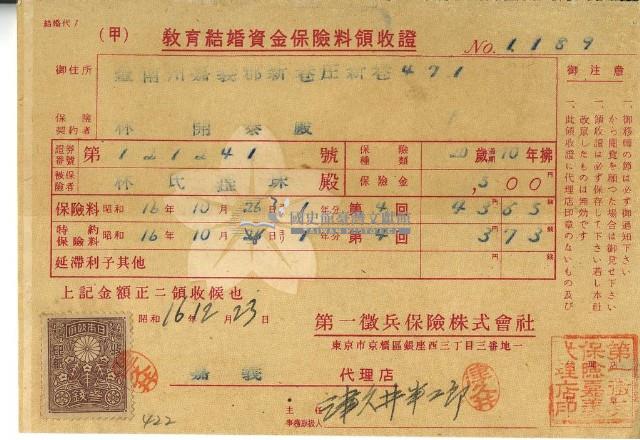 結婚代ノ
（甲） 教育結婚資金保險料領收證
No. 1189
御住所 臺南州嘉義郡新巷庄新巷471
保險契約者 林開泰殿
證券番號 第121241號 保險種類 20歲滿期10年拂
被保險者 林氏 珠殿 保險金 500
保險料 昭和16年10月26日ヨリ1年分 第4回 4365
特約保險料 昭和16年10月26日ヨリ1年分 第4回 373
延滯利子其他
上記金額正ニ領收候也
昭和16年12月23日
第一徵兵保險株式會社
東京市京橋區銀座西三丁目三番地一
嘉義 代理店
主任
事務取扱人 津久井
422
御注意
一、御移轉の節は必ず御通知下さい
一、領收證は必ず保存して下さい若し本社
改竄したものは無效です
一、此領收證に代理店印章のないもの及び
國史館臺灣文獻館
TAIWAN HISTORICA
大日本帝國政府
第一徵兵
保險嘉義
代理店印